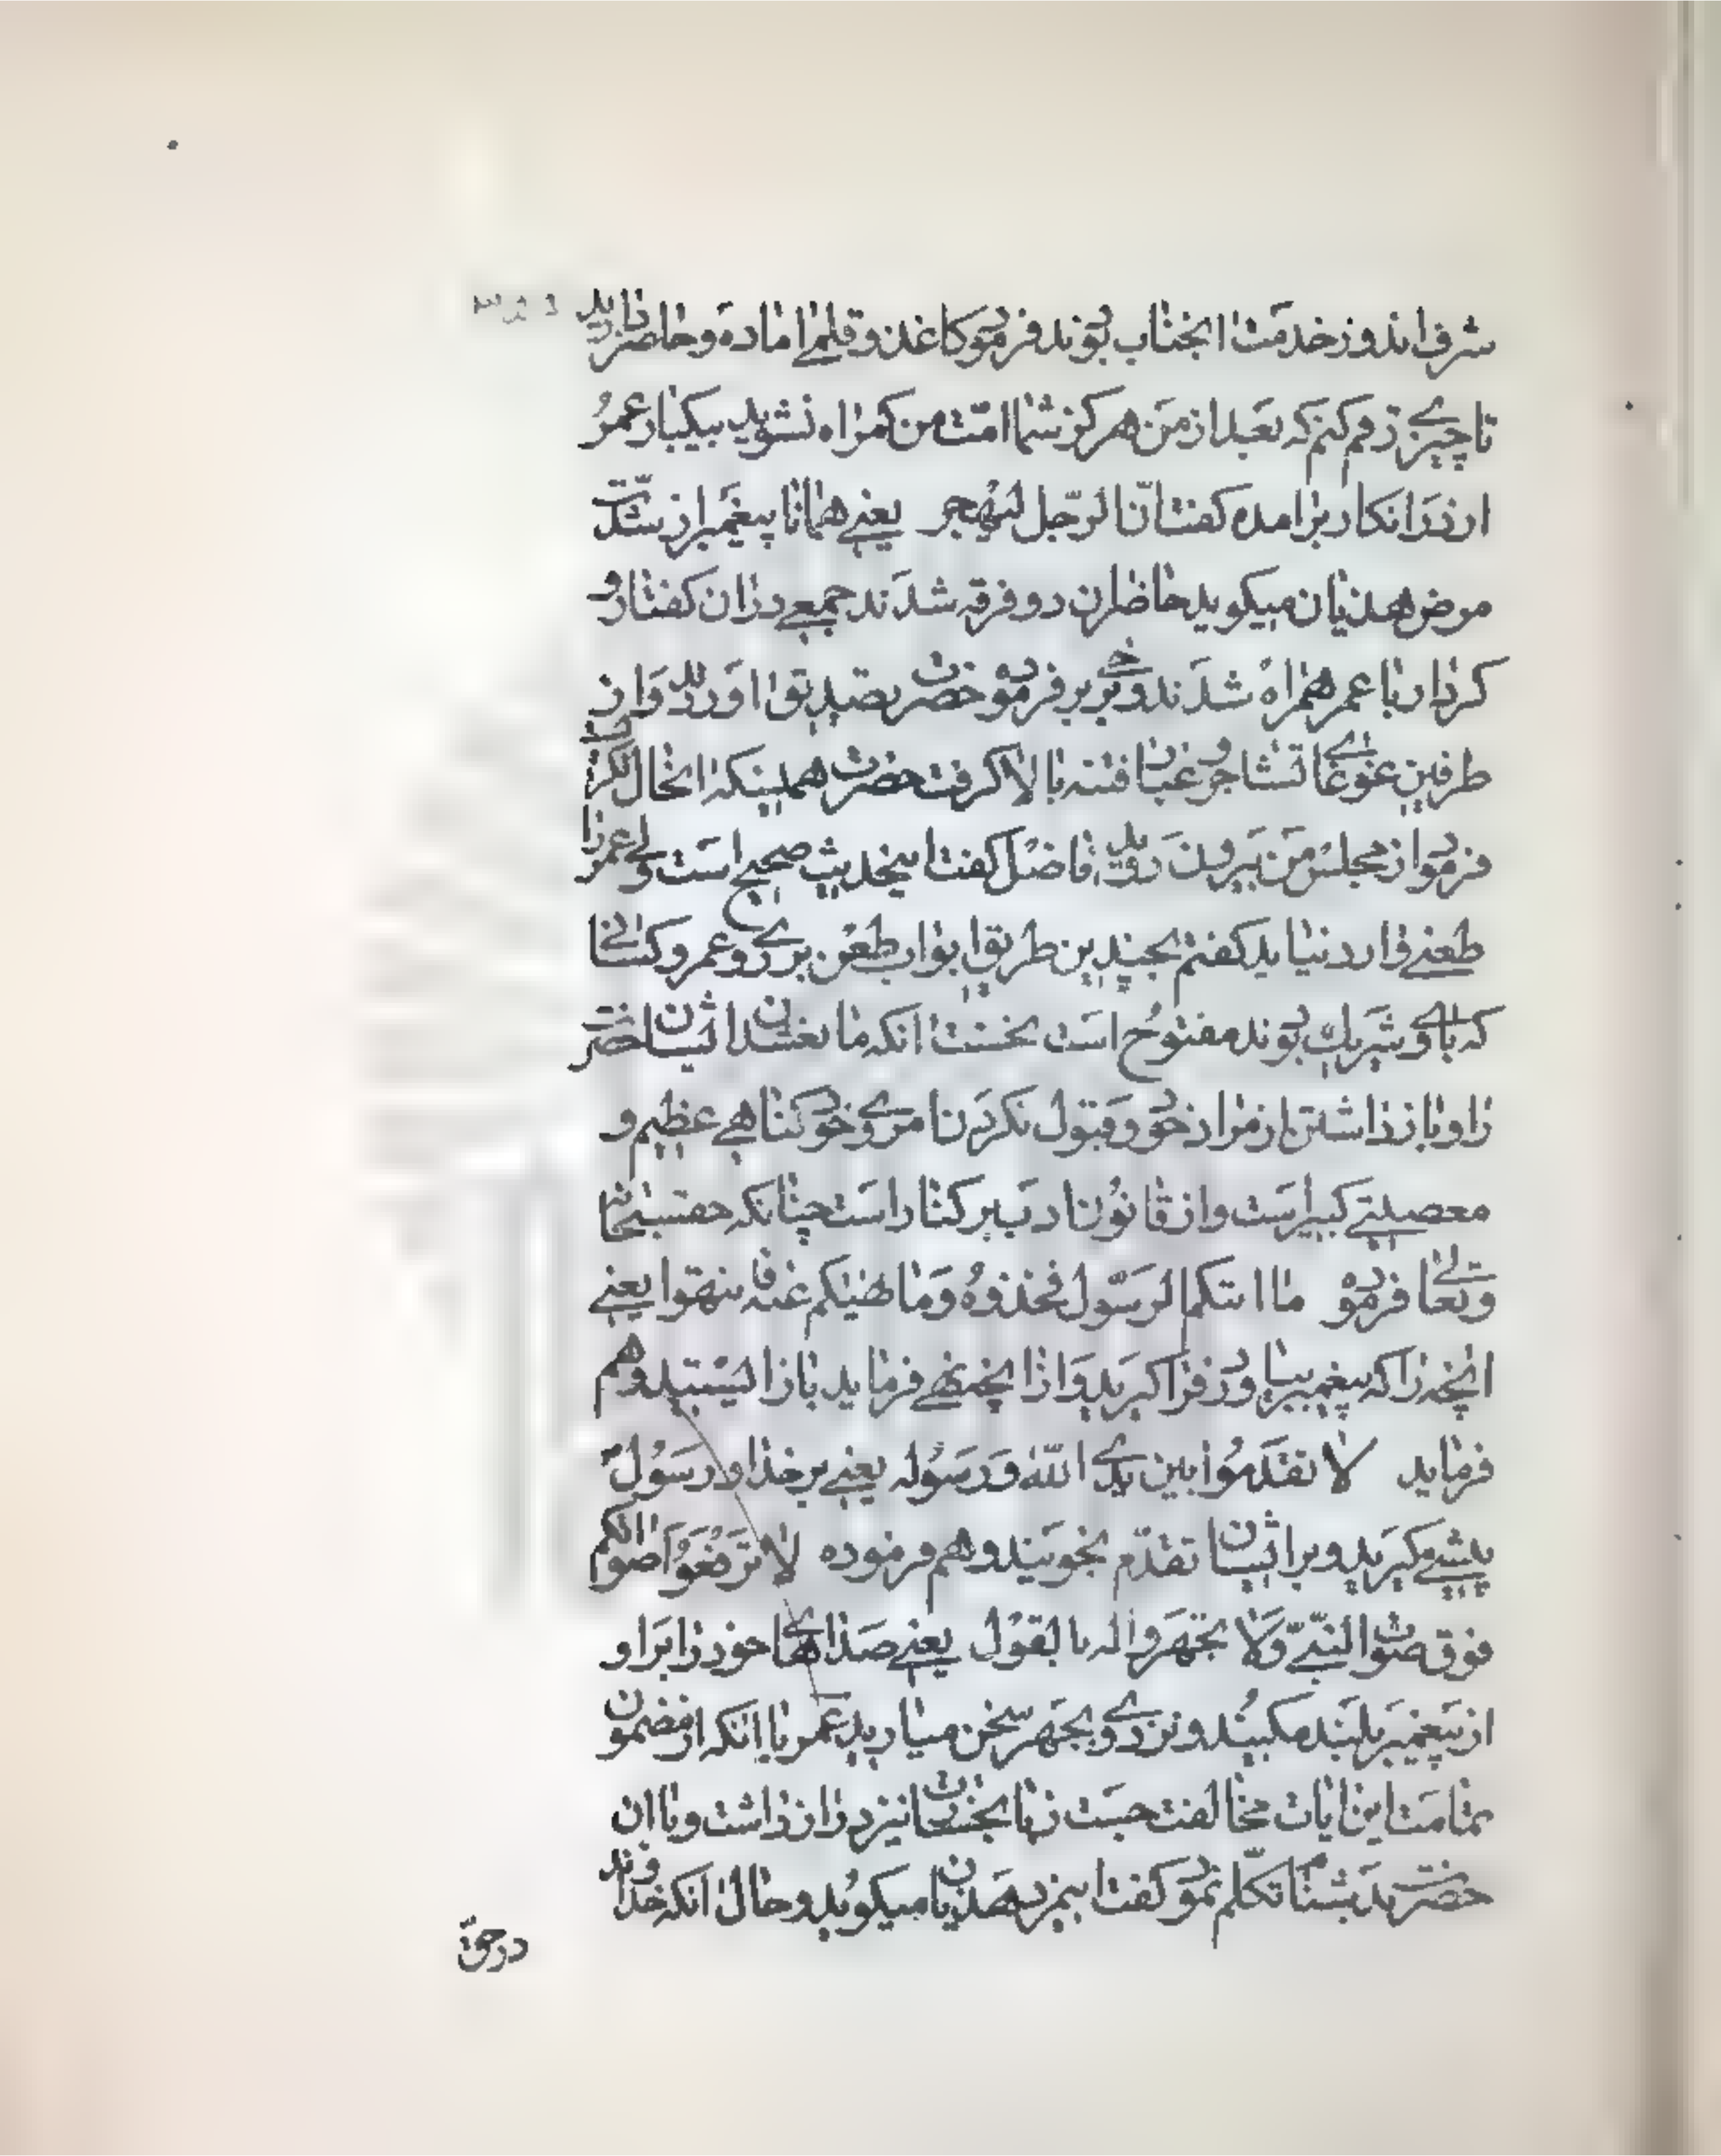 شرف اندوز خدمت انجناب بودند فرمود کاغذ و قلمی اماده و حاضر دارید
تا چیزی رقم کنم که بعد از من هرکز شما امت من کمراه نشوید بیکبار عمر
از در انکار برامده کفت انّ الرّجل لیهجر یعنی همانا پیغمبر از شدّت
مرض هذیان میکوید حاضران دو فرقه شدند جمعی در ان کفتار و
کردار با عمر همراه شدند و برخی بر فرمود حضرت تصدیق اوردند و از
طرفین غوغای تشاجر و غبار فتنه بالا کرفت حضرت همینکه انحال نکریست
فرمود از مجلس من بیرون روید، فاضل کفت اینحدیث صحیح است ولی عمر را
طعنی وارد نیاید کفتم بچندین طریق ابواب طعن بر روی عمر و کسانی
که با وی شریک بودند مفتوح است نخست انکه مانع شدن ایشان حضرت
را و باز داشتن از مراد خود و قبول نکردن امر وی خود کناهی عظیم و
معصیتی کبیر است و از قانون ادب بر کنار است چنانکه حق سبحانه
و تعالی فرموده ما اتیکم الرسّول فخذوه و ما نهیکم عنه فانتهوا یعنی
انچه را که پیغمبر بیاورد فرا کیرید و از انچه نهی فرماید باز ایستید و هم
فرماید لا تقدّموا بین یدی الله و رسوله یعنی بر خدا و رسول
پیشی مکیرید و بر ایشان تقدّم نجوئید و هم فرموده لا ترفعوا اصواتکم
فوق صوت النبیّ و لا تجهروا له بالقول یعنی صداهای خود را بر او
از پیغمبر بلند مکنید و نزد وی بجهر سخن میارید عمر با انکه از مضمون
تمامت این ایات مخالفت جست زبان انجنان نیز دراز داشت و با ان
حضرت بدینسان تکلّم نمود کفت اینمرد هذیان میکوید و حال انکه خداوند
در حقّ